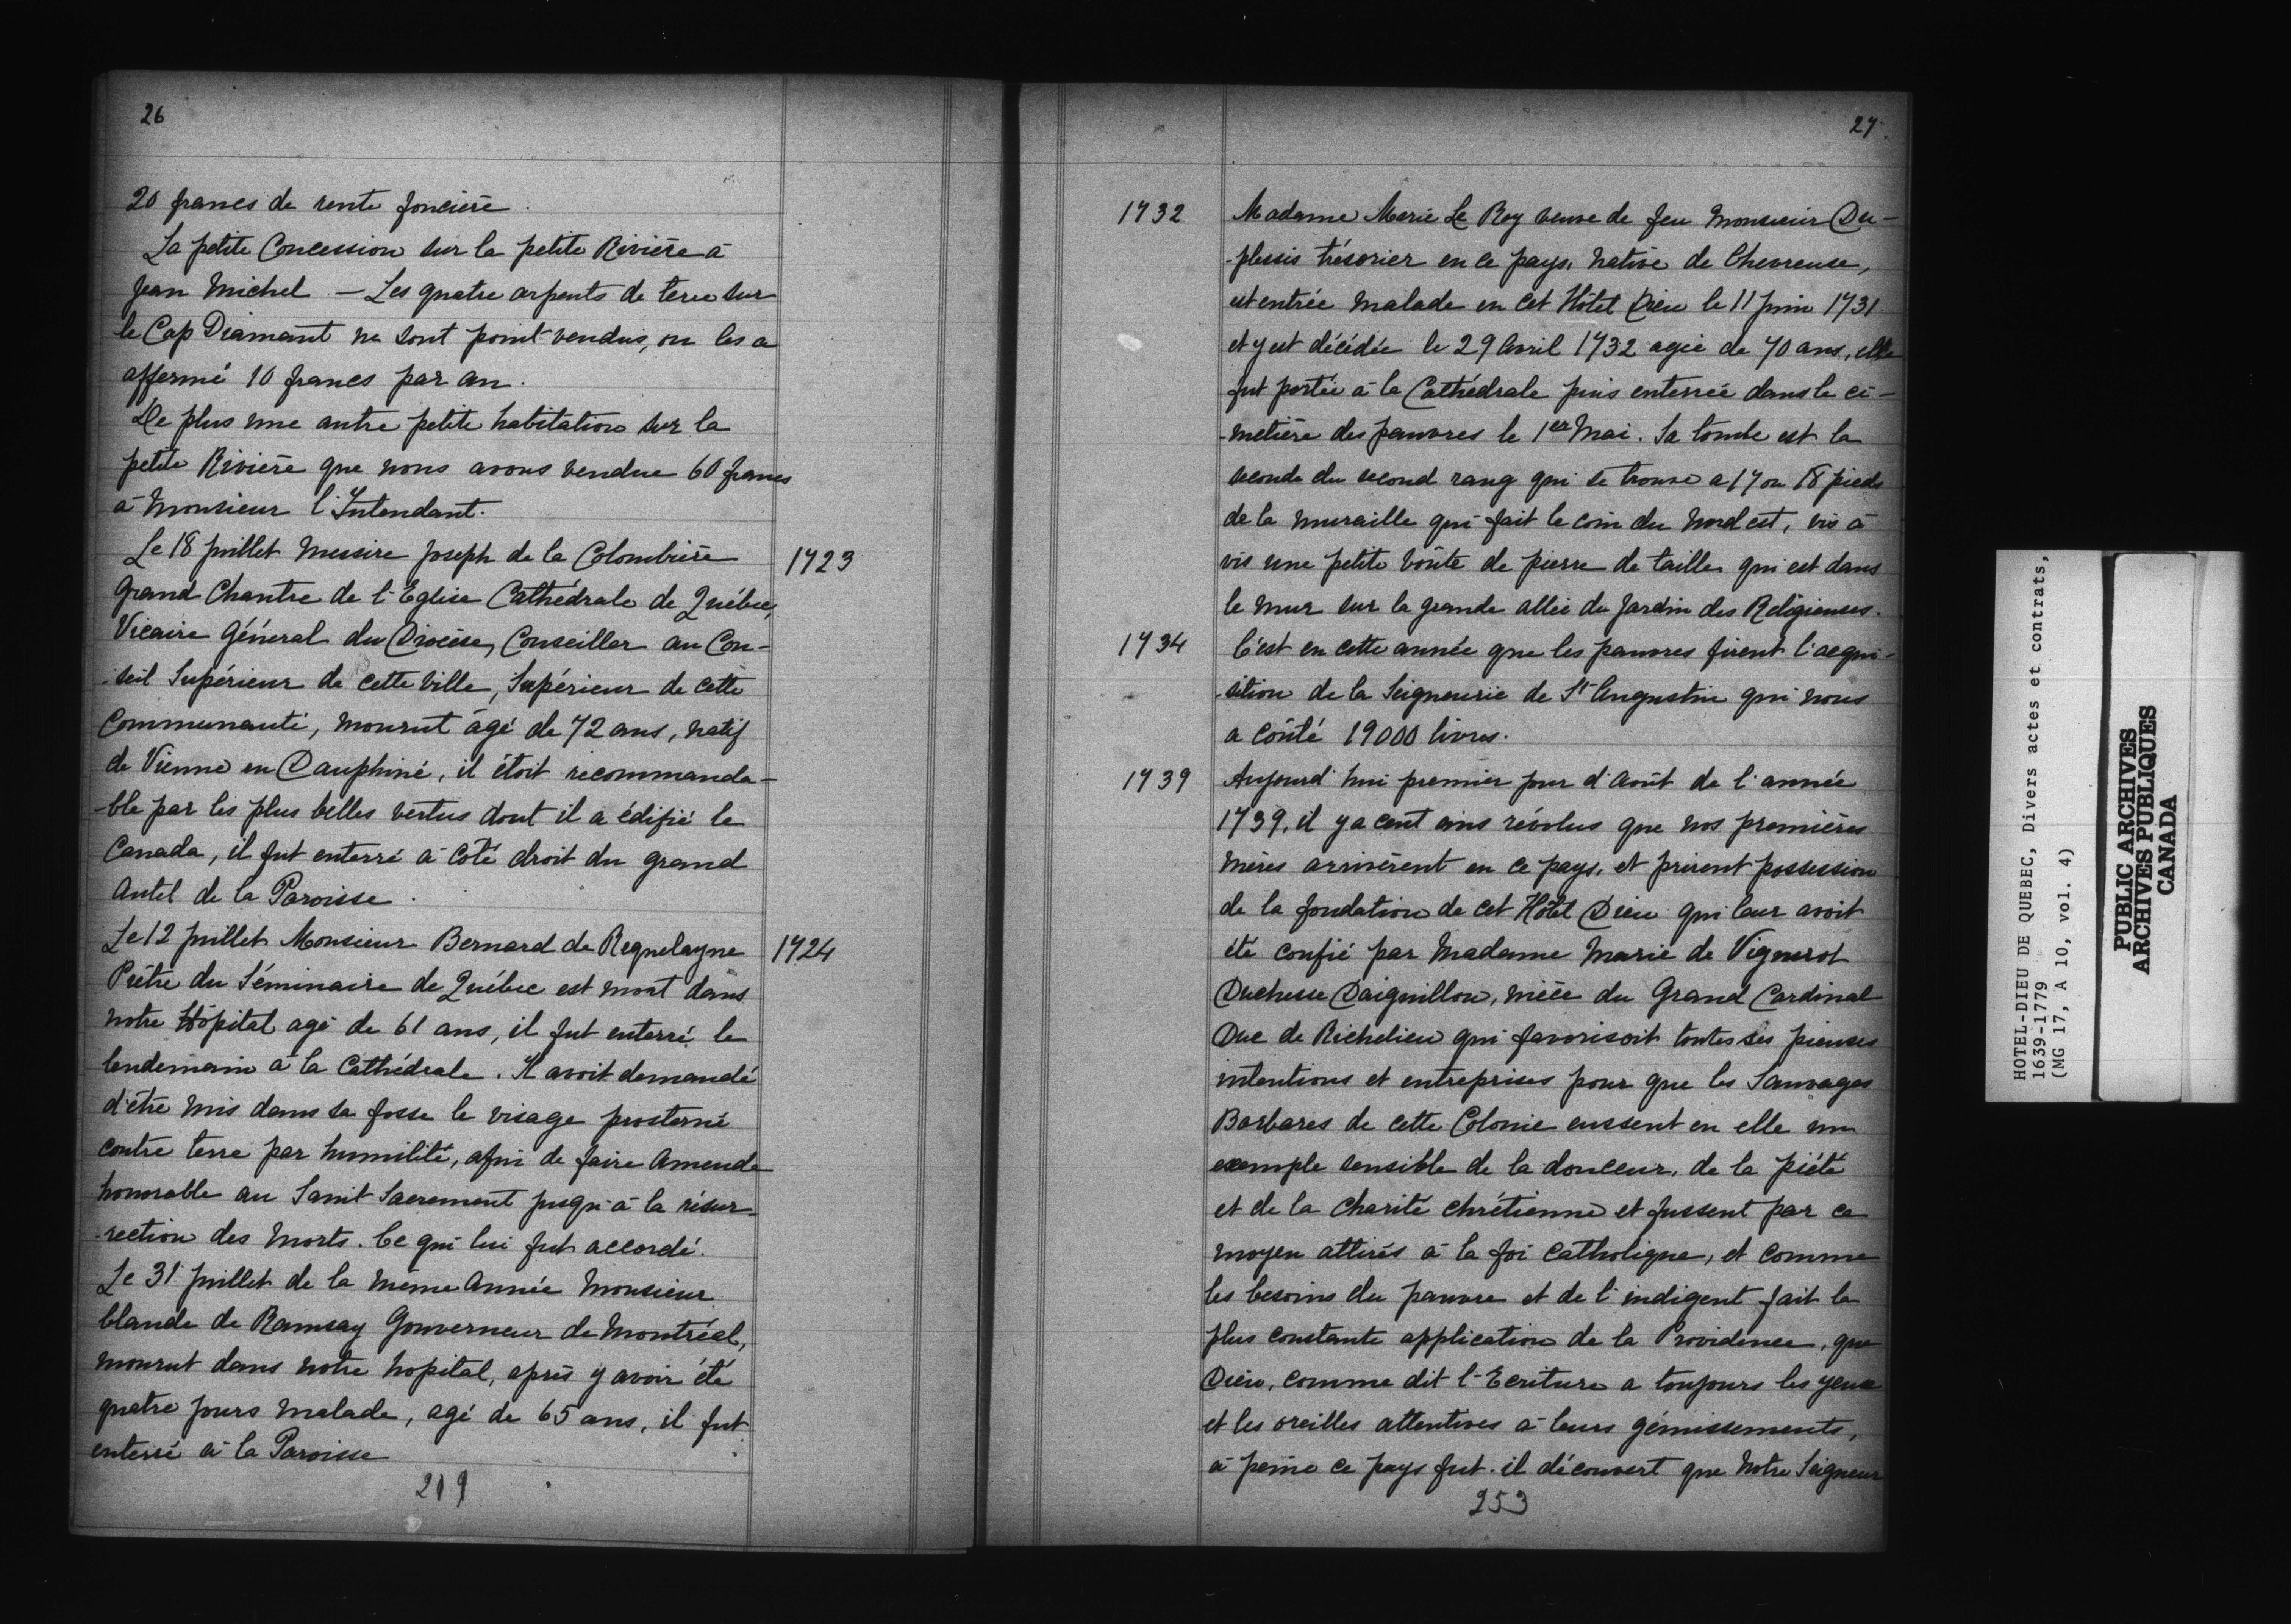 26
20 francs de rente foncière.
La petite Concession sur la petite Rivière à
Jean Michel — Les quatre arpents de terre sur
le Cap Diamant ne sont point vendus, on les a
affermé 10 francs par an.
De plus une autre petite habitation sur la
petite Rivière que nous avons vendue 60 francs
à Monsieur l'Intendant.
Le 18 juillet Messire Joseph de la Colombière 1723
Grand Chantre de l'Eglise Cathédrale de Québec,
Vicaire Général du Diocèse, Conseiller au Con-
-seil Supérieur de cette ville, Supérieur de cette
Communauté, mourut âgé de 72 ans, natif
de Vienne en Dauphiné, il étoit recommanda-
-ble par les plus belles vertus dont il a édifié le
Canada, il fut enterré à coté droit du grand
Autel de la Paroisse.
Le 12 juillet Monsieur Bernard de Requeleyne 1724
Prêtre du Séminaire de Québec est mort dans
notre Hôpital agé de 61 ans, il fut enterré le
lendemain à la Cathédrale. Il avoit demandé
d'être mis dans sa fosse le visage prosterné
contre terre par humilité, afin de faire amende
honorable au Saint Sacrement jusqu'à la résur-
-rection des Morts. Ce qui lui fut accordé.
Le 31 juillet de la même Année Monsieur
Claude de Ramsay Gouverneur de Montréal,
mourut dans notre hopital, après y avoir été
quatre jours malade, agé de 65 ans, il fut
enterré à la Paroisse
219
27
1732 Madame Marie Le Roy veuve de feu Monsieur Du-
-plessis trésorier en ce pays, native de Chevreuse,
est entrée malade en cet Hôtel Dieu le 11 Juin 1731
et y est décédée le 29 Avril 1732 agée de 70 ans, elle
fut portée à la Cathédrale puis enterrée dans le ci-
-metière des pauvres le 1er Mai. Sa tombe est la
seconde du second rang qui se trouve a 17 ou 18 pieds
de la muraille qui fait le coin du Nord est, vis à
vis une petite voûte de pierre de taille qui est dans
le mur sur la grande allée du Jardin des Religieuses.
1734 C'est en cette année que les pauvres firent l'acqui-
-sition de la Seigneurie de St Augustin qui nous
a coûté 19000 livres.
1739 Aujourd'hui premier jour d'Août de l'année
1739, il y a cent ans révolus que nos premières
Mères arrivèrent en ce pays, et prirent possession
de la fondation de cet Hôtel Dieu qui leur avoit
été confié par Madame Marie de Vignerot
Duchesse Daiguillon, nièce du Grand Cardinal
Duc de Richelieu qui favorisoit toutes ses pieuses
intentions et entreprises pour que les Sauvages
Barbares de cette Colonie eussent en elle un
exemple sensible de la douceur, de la piété
et de la Charité chrétienne et fussent par ce
moyen attirés à la foi Catholique, et comme
les besoins du pauvre et de l'indigent fait la
plus constante application de la Providence, que
Dieu, comme dit l'Ecriture a toujours les yeux
et les oreilles attentives à leurs gémissements,
à peine ce pays fut-il découvert que Notre Seigneur
253
HOTEL-DIEU DE QUEBEC, Divers actes et contrats,
1639-1779
(MG 17, A 10, vol. 4)
PUBLIC ARCHIVES
ARCHIVES PUBLIQUES
CANADA